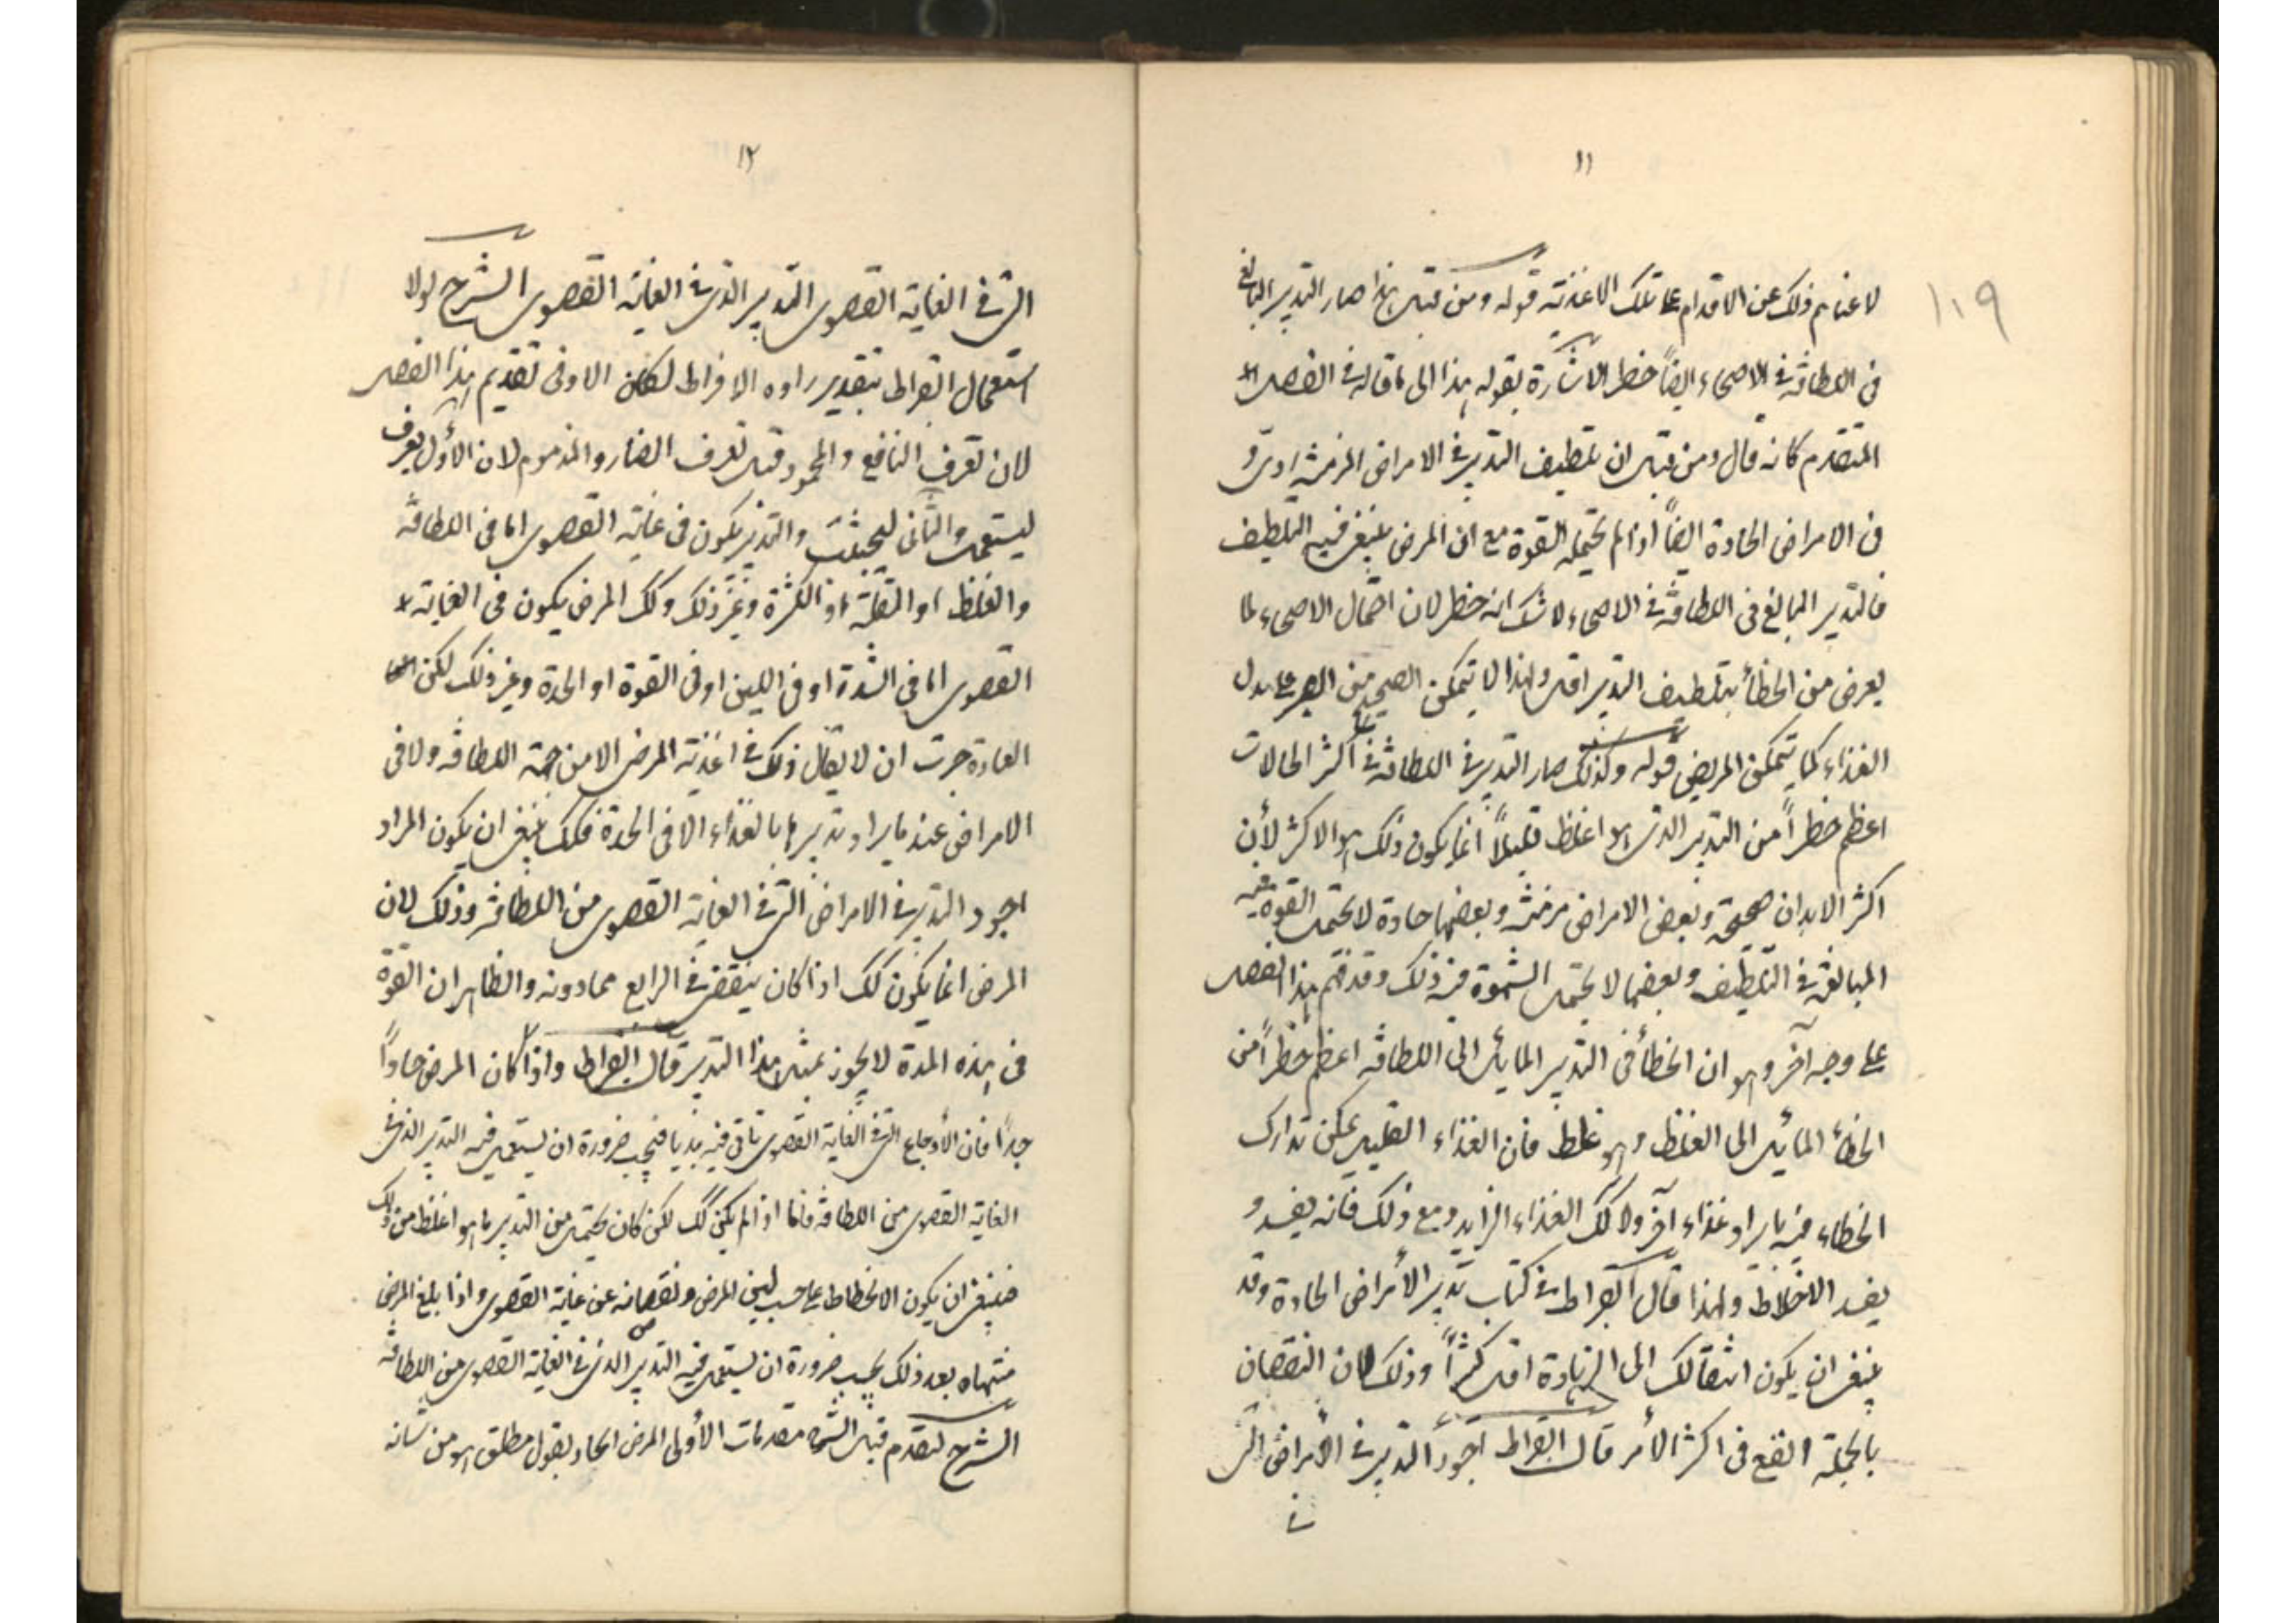 ١١
١١٩
لاعتنائهم ذلك عن الاقدام على تلك الاغذية قوله ومن قبل هذا صار التدبير البالغ
فى اللطافة فى الاصحاء ايضاً خطر الاشارة بقوله هذا الى ما قاله فى الفصل
المتقدم كانه قال ومن قبل ان تلطيف التدبير فى الامراض المزمنة ردى و
فى الامراض الحادة ايضاً اذا لم تحتمله القوة مع ان المرض ينبغى فيه التلطيف
فالتدبير البالغ فى اللطافة فى الاصحاء لا شك انه خطر لان احتمال الاصحاء لما
يعرض من الخطأ بتلطيف التدبير اقل ولهذا لا يتمكن الصحيح من الصبر على بدل
الغذاء كما يتمكن المريض قوله وكذلك صار التدبير فى اللطافة فى اكثر الحالات
اعظم خطراً من التدبير الذى هو اغلظ قليلاً انما يكون ذلك هو الاكثر لأن
اكثر الابدان صحيحة وبعض الامراض مزمنة وبعضها حادة لا تحتمل القوة فيه
المبالغة فى التلطيف وبعضها لا تحتمل الشهوة فيه ذلك وقد فهم هذا الفصل
على وجه آخر وهو ان الخطأ فى التدبير المائل الى اللطافة اعظم خطراً من
الخطأ المائل الى الغلظ وهو غلط فان الغذاء القليل يمكن تدارك
الخطاء فيه بايراد غذاء آخر ولا كك الغذاء الزايد ومع ذلك فانه يفسد و
يفسد الاخلاط ولهذا قال ابقراط فى كتاب تدبير الأمراض الحادة وقد
ينبغى ان يكون انتقالك الى الزيادة اقل كثراً وذلك لان النقصان
بالجملة انفع فى اكثر الأمر قال ابقراط اجود التدبير فى الأمراض التى
فى
١٢
التى فى الغاية القصوى التدبير الذى فى الغاية القصوى الشرح لولا
استعمال ابقراط بتقدير راوه الافراط لكان الاوفى تقديم هذا الفصل
لان تعرف النافع والمحمود قبل تعرف الضار والمذموم لان الأول يعرف
ليستعمل والثانى ليجتنب والتدبير يكون فى غاية القصوى اما فى اللطافة
والغلظ او القلة او الكثرة وغير ذلك وكك المرض يكون فى الغاية
القصوى اما فى الشدة او فى اللين او فى القوة او الحدة وغير ذلك لكن
العادة جرت ان لا يقال ذلك فى اغذية المرض الا من جهة اللطافة ولا فى
الامراض عند ما يراد تدبيرها بالغذاء الا فى الحدة فكك ينبغى ان يكون المراد
اجود التدبير فى الامراض التى فى الغاية القصوى من اللطافة وذلك لان
المرض انما يكون كك اذا كان ينقضى فى الرابع فمادونه والظاهر ان القوة
فى هذه المدة لا تخور بمثل هذا التدبير قال ابقراط واذا كان المرض حاداً
جداً فان الأوجاع التى فى الغاية القصوى تأتى فيه بديا فيجب ضرورة ان يستعمل فيه التدبير الذى فى
الغاية القصوى من اللطافة فاما اذا لم يكن كك لكن كان يحتمل من التدبير ما هو اغلظ من ذلك
فينبغى ان يكون الانحطاط على حسب لين المرض ونقصانه عن غاية القصوى واذا بلغ المرض
منتهاه بعد ذلك يجب ضرورة ان يستعمل فيه التدبير الذى فى الغاية القصوى من اللطافة
الشرح لنقدم قبل الشرح مقدمات الأولى المرض الحاد بقول مطلق هو من شانه